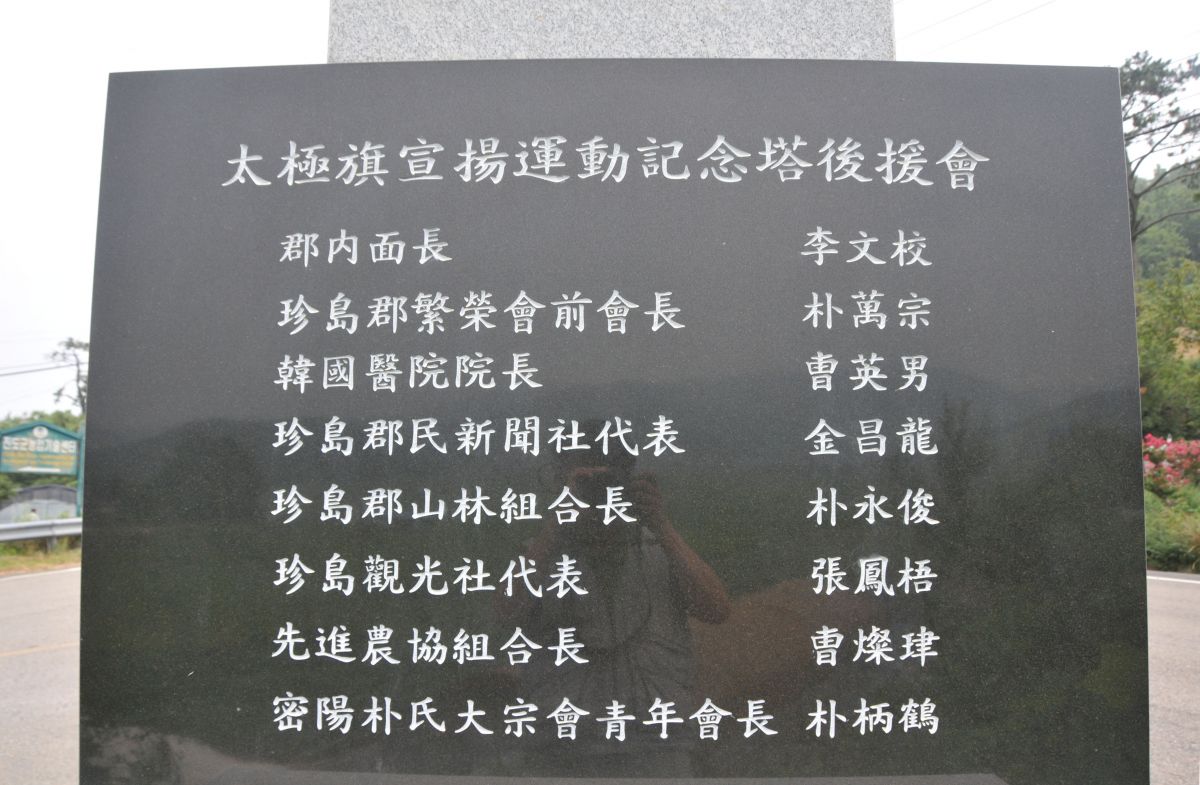 太極旗宣揚運動記念塔後援會
郡内面長 李文校
珍島郡繁榮會前會長 朴萬宗
韓國醫院院長 曺英男
珍島郡民新聞社代表 金昌龍
珍島郡山林組合長 朴永俊
珍島觀光社代表 張鳳梧
先進農協組合長 曺燦珒
密陽朴氏大宗會青年會長 朴柄鶴
진도군농업기술센터